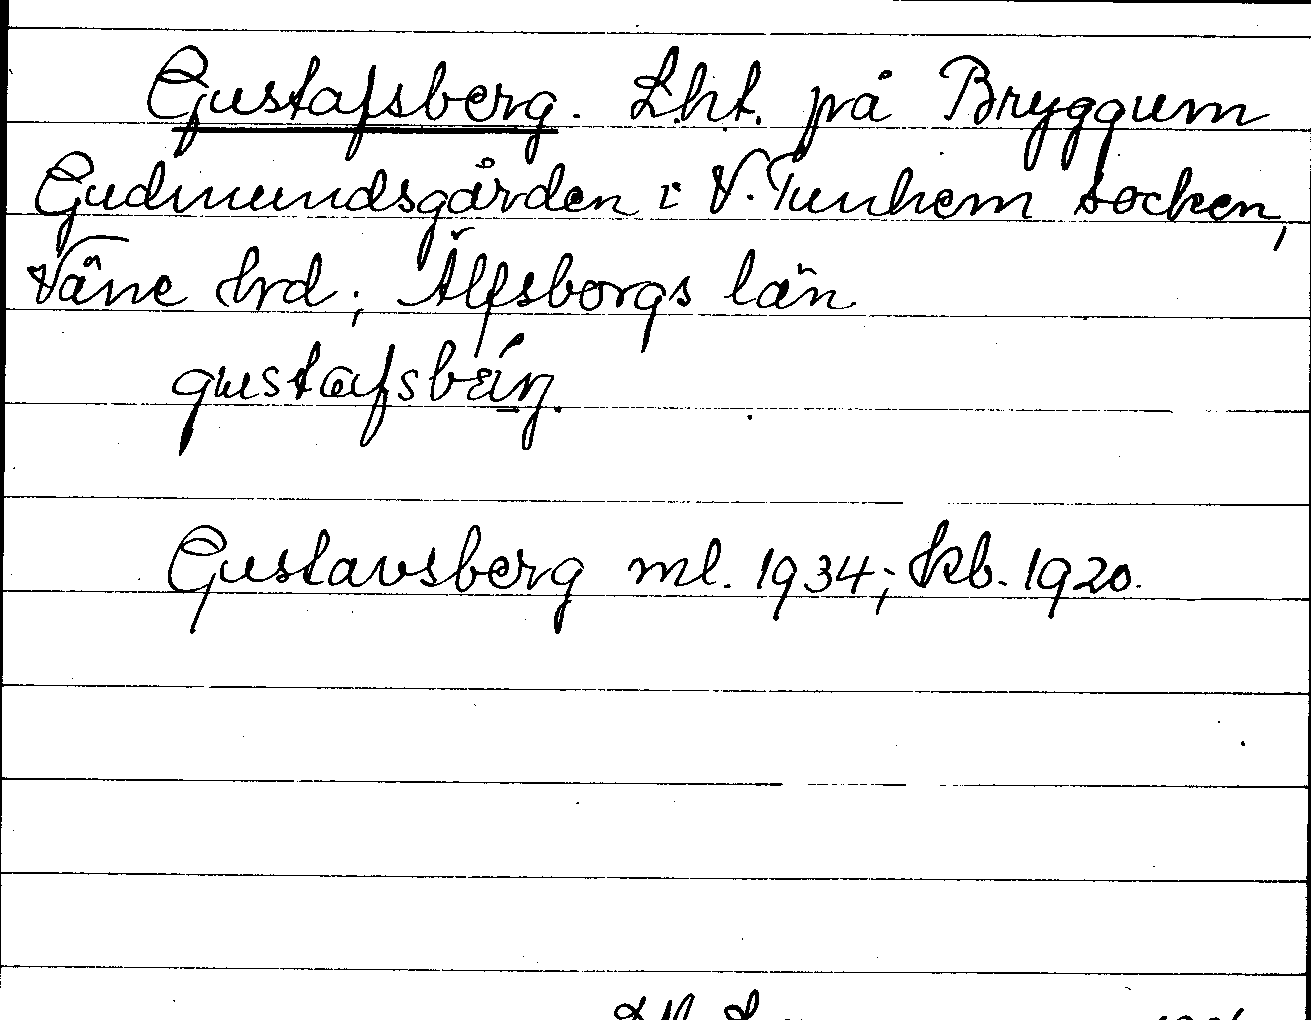 Gustafsberg. Lht. på Bryggum
Gudmundsgården i V. Tunhem socken,
Väne hrd; Älfsborgs län
gustafsbärj.
Gustavsberg ml. 1934; kb. 1920.